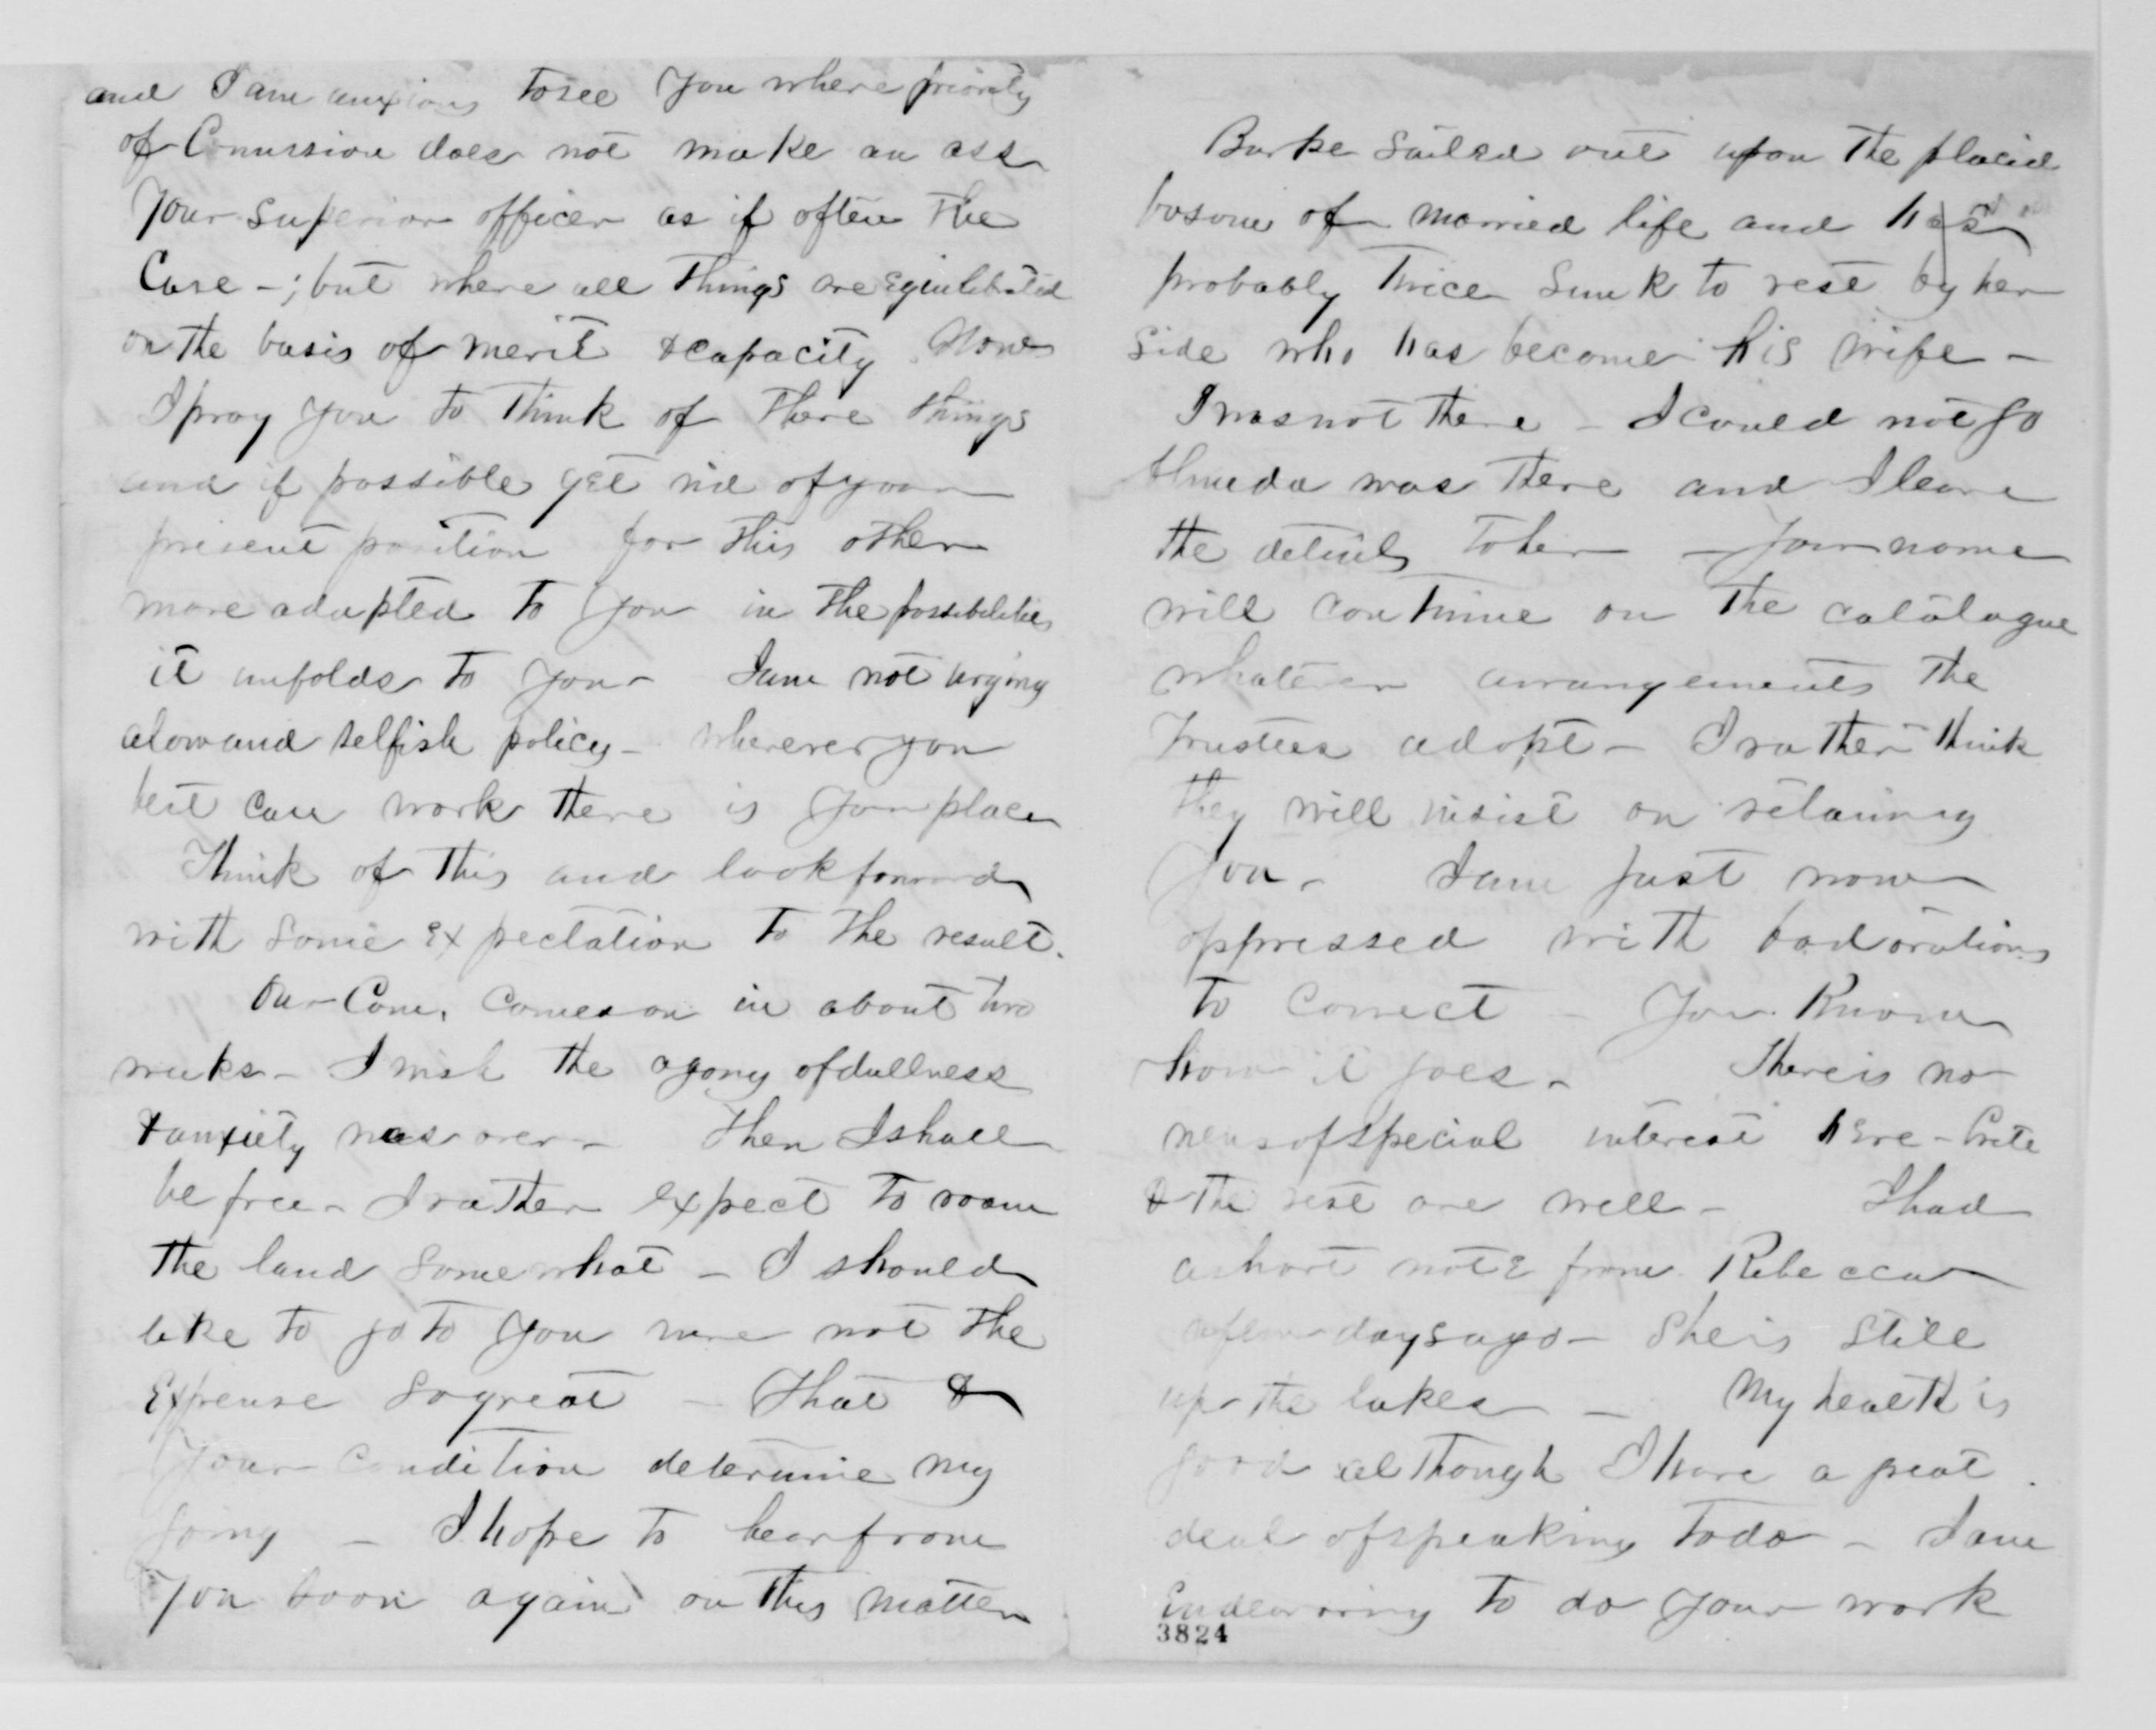 and I am anxious to see you where priority
of Commission does not make an ass
your superior officer as if often the
Case -; but where all things are equilibrated
on the basis of merit & capacity. Now
I pray you to think of these things
and if possible get rid of your
present position for this other
more adapted to you in the possibilities
it unfolds to you - I am not urging
a low and selfish policy - wherever you
best can work there is your place
Think of this and look forward
with some expectation to the result.
Our Com. comes on in about two
weeks - I wish the agony of dullness
& anxiety was over - Then I shall
be free - I rather expect to roam
the land somewhat - I should
like to go to you were not the
expense so great - That &
your condition determine my
going - I hope to hear from
you soon again on this matter
Burke sailed out upon the placid
bosom of married life and has
probably twice sunk to rest by her
side who has become his wife -
I was not there - I could not go
Almeda was there and I leave
the details to her - Your name
will continue on the catalogue
whatever arrangements the
Trustees adopt - I rather think
they will insist on retaining
you - I am just now
oppressed with bad orations
to correct - You know
how it goes - There is no
news of special interest here - Crete
& the rest are well - I had
a short note from Rebecca
a few days ago - She is still
up the lakes - My health is
good although I have a great
deal of speaking to do - I am
endeavoring to do your work
3824